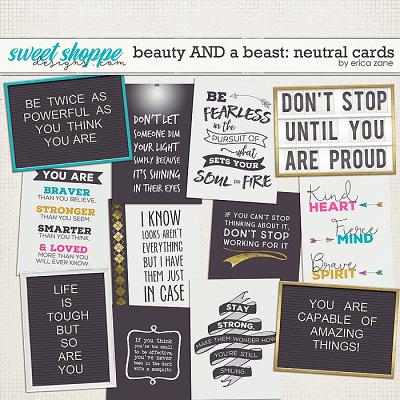 sweet shoppe
designs.com
beauty AND a beast: neutral cards
by erica zane
BE TWICE AS
POWERFUL AS
YOU THINK
YOU ARE
DON'T LET
SOMEONE DIM
YOUR LIGHT
SIMPLY BECAUSE
IT'S SHINING
IN THEIR EYES
BE
FEARLESS
in the
PURSUIT OF
what
SETS YOUR
SOUL on FIRE
DON'T STOP
UNTIL YOU
ARE PROUD
YOU ARE
BRAVER
THAN YOU BELIEVE,
STRONGER
THAN YOU SEEM,
SMARTER
THAN YOU THINK,
& LOVED
MORE THAN YOU
WILL EVER KNOW.
I KNOW
LOOKS AREN'T
EVERYTHING
BUT I HAVE
THEM JUST
IN CASE
IF YOU CAN'T STOP
THINKING ABOUT IT,
DON'T STOP
WORKING FOR IT
Kind
HEART
Fierce
MIND
Brave
SPIRIT
LIFE
IS
TOUGH
BUT SO
ARE YOU
if you think
you're too small
to be effective,
you've never
been in the dark
with a mosquito
STAY
STRONG,
MAKE THEM WONDER HOW
YOU'RE STILL
SMILING
YOU ARE
CAPABLE OF
AMAZING
THINGS!